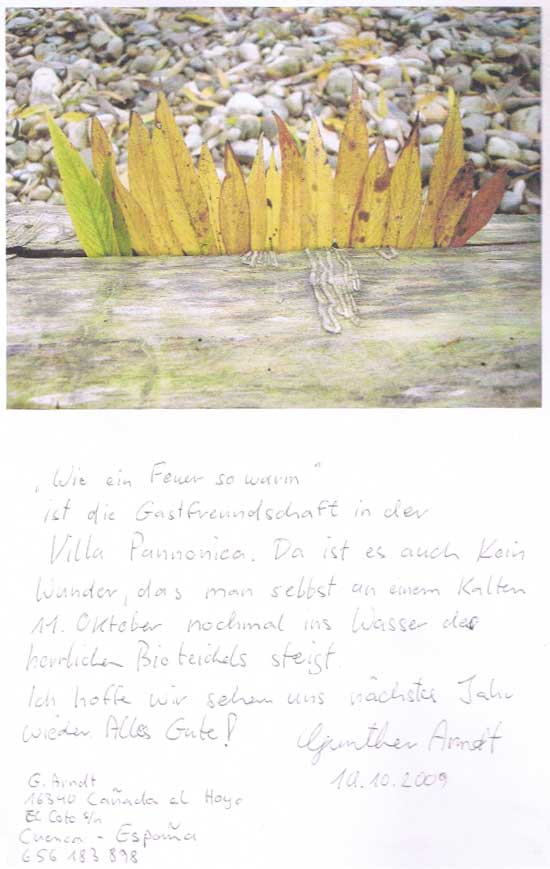 „Wie ein Feuer so warm"
ist die Gastfreundschaft in der
Villa Pannonica. Da ist es auch kein
Wunder, das man selbst an einem kalten
11. Oktober nochmal ins Wasser des
herrlichen Bioteichels steigt.
Ich hoffe wir sehen uns nächstes Jahr
wieder. Alles Gute!
Gunther Arndt
19.10.2009
G. Arndt
16340 Cañada el Hoyo
EL Coto s/n
Cuenca - España
656 183 898